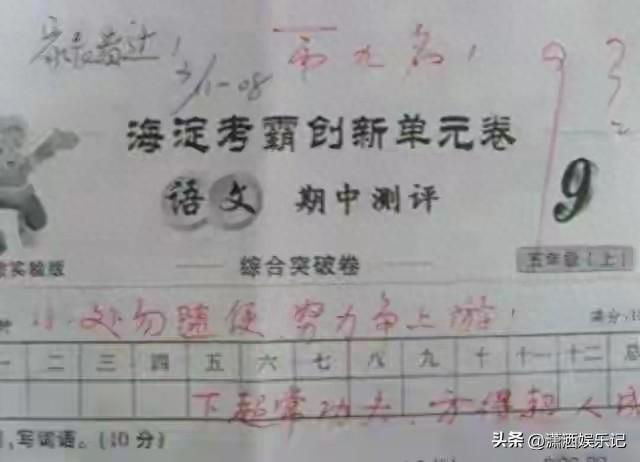 家长看过！ 第九名！
3/11-08
海淀考霸创新单元卷
语文 期中测评 9
实验版 综合突破卷 五年级(上)
钟 小处勿随便，努力争上游！ 满分:1
一 二 三 四 五 六 七 八 九 十 十一 十二 总
下超常功夫，方得超人成
,写词语。(10分)
头条 @潇洒娱乐记